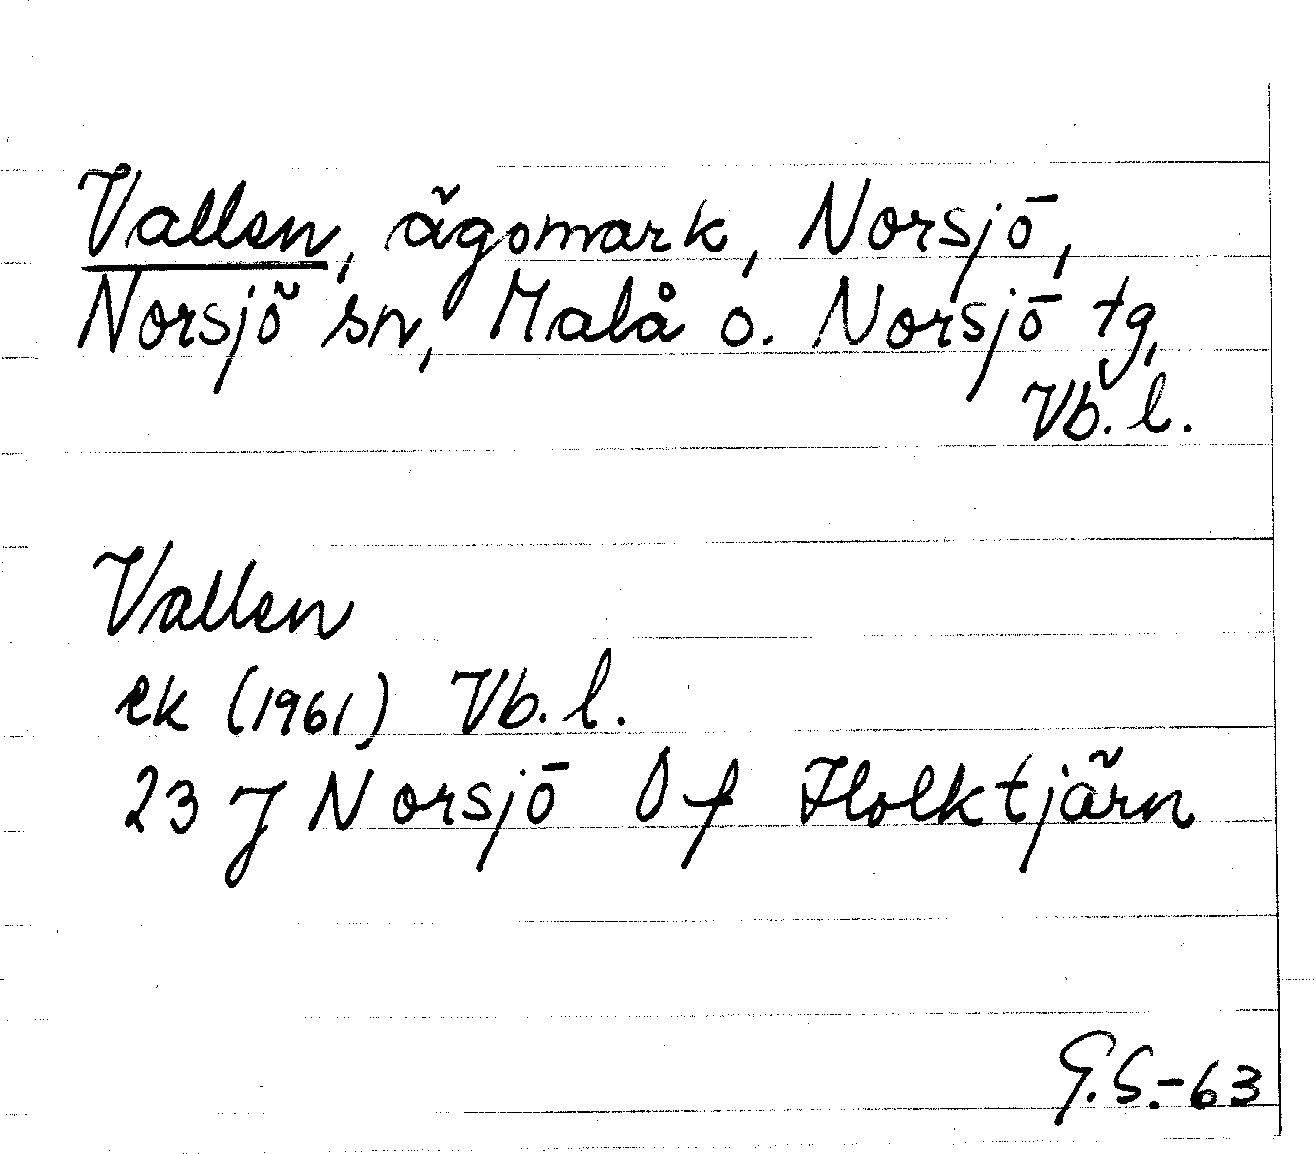 Vallen, ägomark, Norsjö,
Norsjö sn, Malå o. Norsjö tg,
Vb. l.
Vallen
ek (1961) Vb. l.
23 J Norsjö Of Holktjärn
G.S.-63